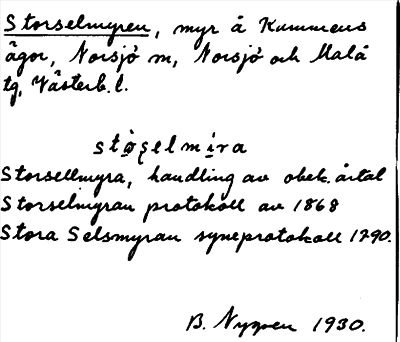 Storselmyren, myr å Kummens
ägor, Norsjö sn, Norsjö och Malå
tg, Västerb. l.
stọ̀ʂelmi̬ra
Storsellmyra, handling av obek. årtal
Storselmyran protokoll av 1868
Stora Selsmyran syneprotokoll 1790.
B. Nygren 1930.